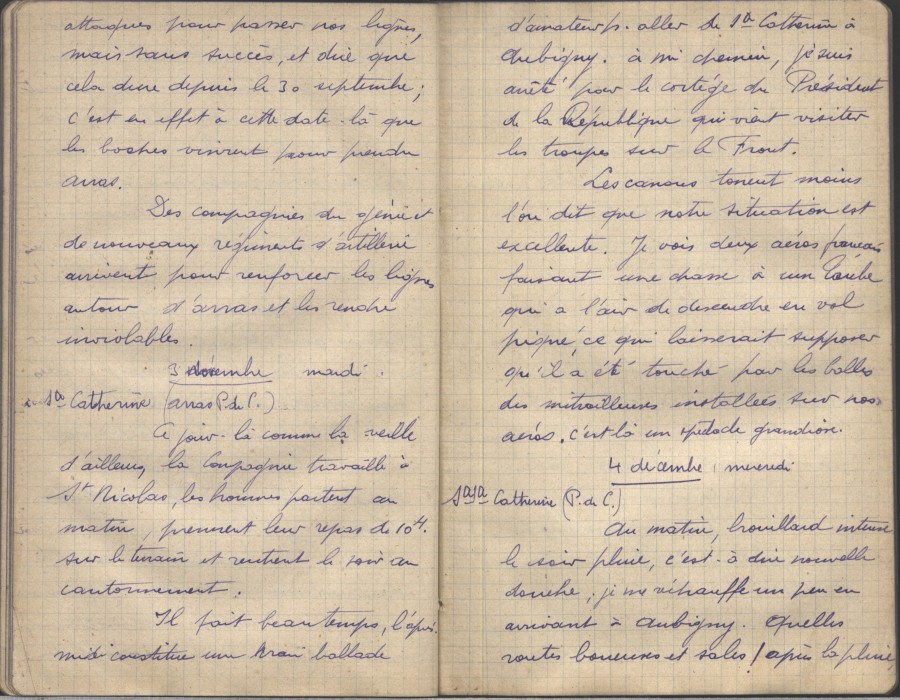 attaques pour passer nos lignes,
mais sans succès, et dire que
cela dure depuis le 30 septembre ;
c'est en effet à cette date-là que
les boches vinrent pour prendre
arras.
Des compagnies du génie et
de nouveaux régiments d'artillerie
arrivent pour renforcer les lignes
autour d'arras et les rendre
inviolables.
3 mardi.
Ste Catherine (arras P. de C.)
Ce jour-là comme la veille
d'ailleurs, la Compagnie travaille à
St Nicolas, les hommes partent au
matin, prennent leur repas de 10h.
sur le terrain et rentrent le soir au
cantonnement.
Il fait beau temps, l'après
midi constitue une vraie ballade
d'amateur p. aller de Ste Catherine à
Aubigny. à mi chemin, je suis
arrêté pour le cortège du Président
de la République qui vient visiter
les troupes sur le Front.
Les canons tonnent moins
l'on dit que notre situation est
excellente. Je vois deux aéros français
faisant une chasse à un Taube
qui a l'air de descendre en vol
piqué, ce qui laisserait supposer
qu'il a été touché par les balles
des mitrailleuses installées sur nos
aéros. c'est là un spectacle grandiose.
4 décembre mercredi
Ste Catherine (P. de C.)
Au matin, brouillard intense
le soir pluie, c'est-à dire nouvelle
douche ; je me réchauffe un peu en
arrivant à Aubigny. Quelles
routes boueuses et sales ! après la pluie